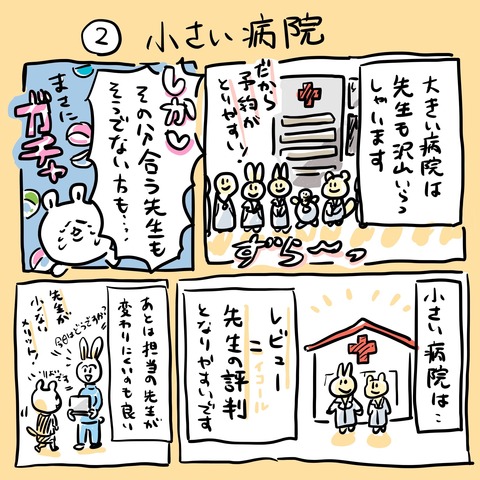 ② 小さい病院
大きい病院は
先生も沢山いらっ
しゃいます
だから
予約が
とりやすい!
ずら〜っ
しかし
その分合う先生も
そうでない方も…
まさに
ガチャ
小さい病院は…
レビュー
=
イコール
先生の評判
となりやすいです
あとは担当の先生が
変わりにくいのも良い
今日はどうですか
先生が
少ない
メリット!